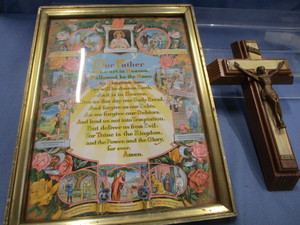 Our Father
art in Heaven,
Hallowed be thy Name
Thy will be done on Earth,
As it is in Heaven.
Give us this day our Daily Bread.
And forgive us our Debts,
As we forgive our Debtors.
And lead us not into Temptation,
But deliver us from Evil:
For Thine is the Kingdom,
and the Power, and the Glory,
for ever.
Amen.